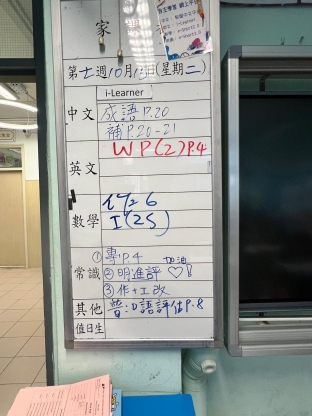 家
第十週10月13日(星期二)
i-Learner
中文 成語 P.20
補P.20-21
英文 WP(2)P.4
數學 I(2S)
常識 ①專P.4
②明進評 加油
③作+工改
其他 普:口語評估P.8
值日生